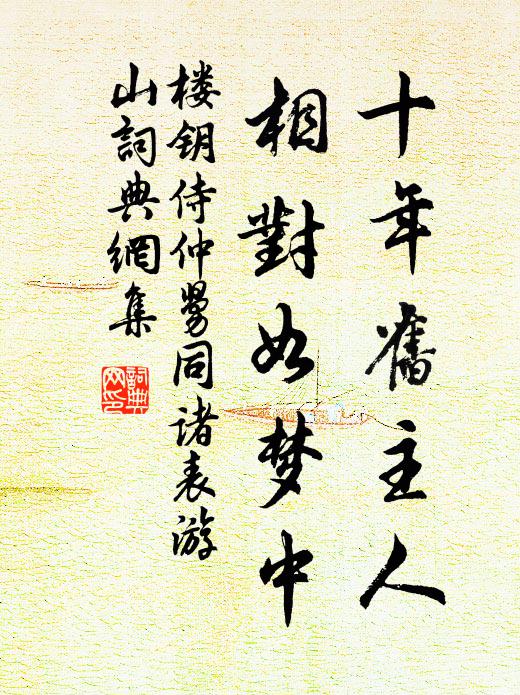 十年舊主人
相對如梦中
楼钥侍仲舅同诸表游
山詞典網集
詞典
网印